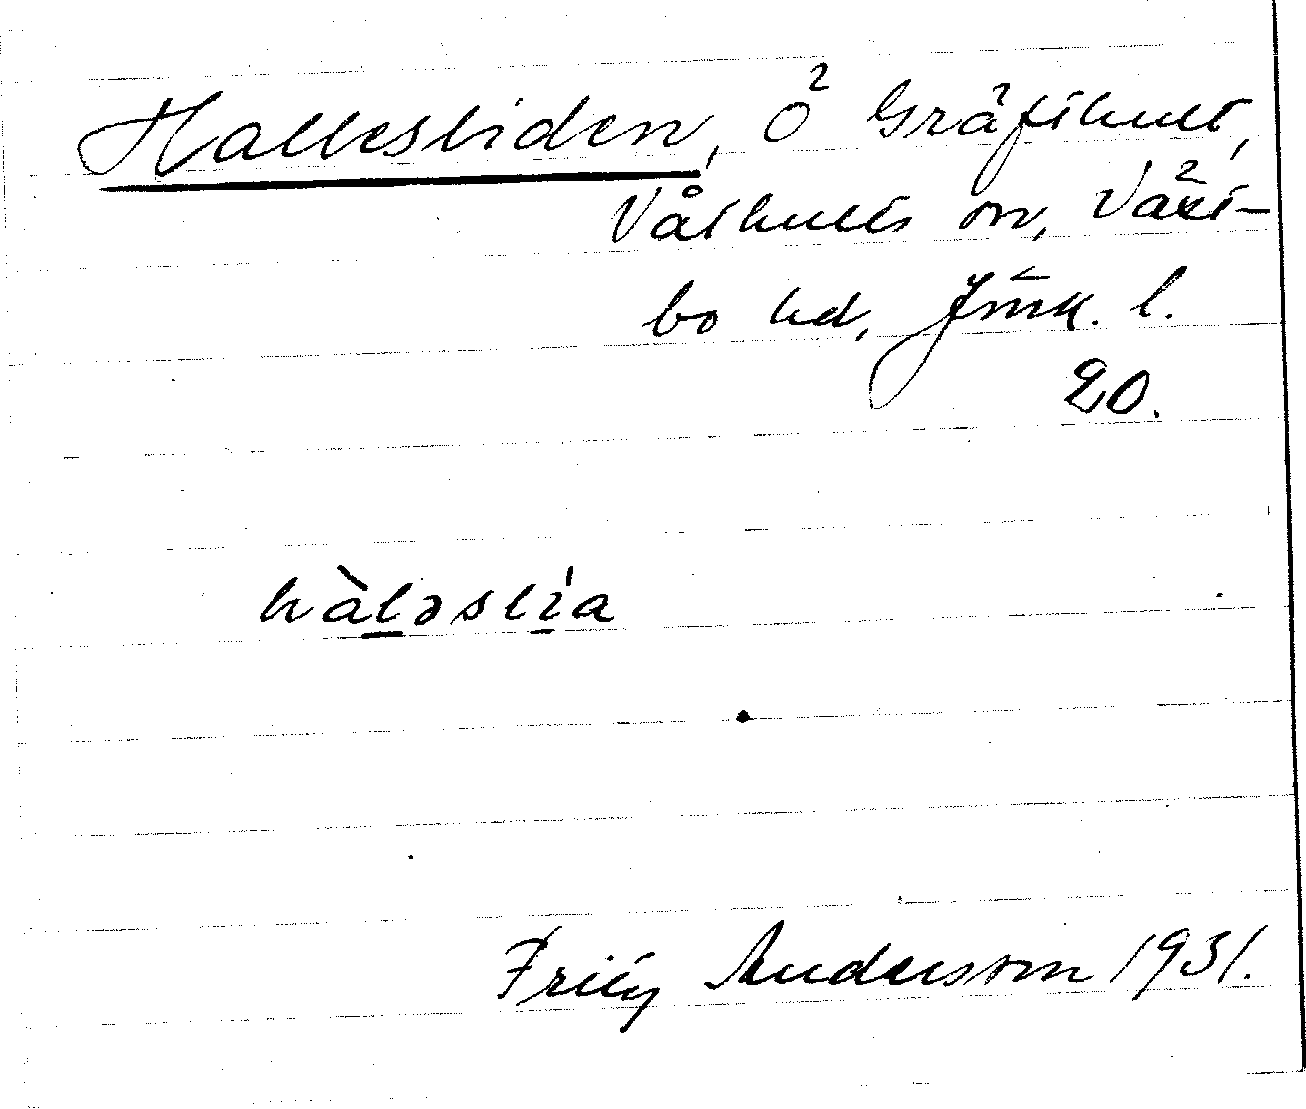 Hallesliden, Ö Gräfthult,
Våthults sn, Väst-
bo hd, Jönk. l.
20.
hàləslía
Fritz Andersson 1931.